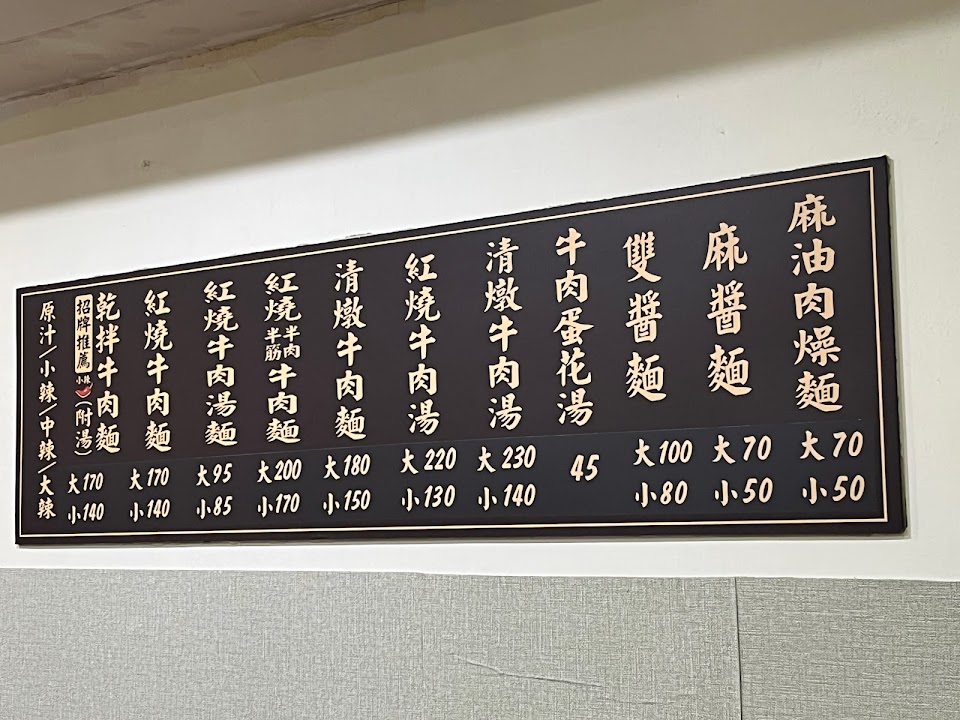 麻油肉燥麵
大70
小50
麻醬麵
大70
小50
雙醬麵
大100
小80
牛肉蛋花湯
45
清燉牛肉湯
大230
小140
紅燒牛肉湯
大220
小130
清燉牛肉麵
大180
小150
紅燒半肉半筋牛肉麵
大200
小170
紅燒牛肉湯麵
大95
小85
紅燒牛肉麵
大170
小140
乾拌牛肉麵
招牌推薦 小辣 (附湯)
大170
小140
原汁/小辣/中辣/大辣